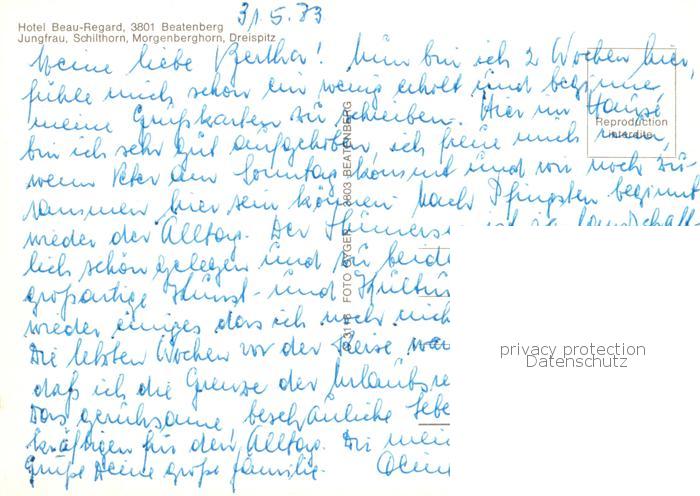 31.5.73
Hotel Beau-Regard, 3801 Beatenberg
Jungfrau, Schilthorn, Morgenberghorn, Dreispitz
Reproduction
interdite
Meine liebe Bertha! Nun bin ich 2 Wochen hier,
fühle mich schon ein wenig erholt und beginne,
meine Grußkarten zu schreiben. Hier im Hause
bin ich sehr gut aufgehoben, ich freue mich
wenn Peter am Sonntag kommt und wir noch zu-
sammen hier sein können. Nach Pfingsten beginnt
wieder der Alltag. Der ist ja landschaft
lich schön gelegen und zu beide
großartige Kunst- und Kultur
wieder einiges das ich noch nich
Die letzten Wochen vor der Reise war
daß ich die Grenze der Urlaubsre
Das geruhsame, beschauliche Lebe
kräftigen für den Alltag. Die mein
Grüße Deine große Familie. Deine
FOTO GYGER 3803 BEATENBERG
privacy protection
Datenschutz